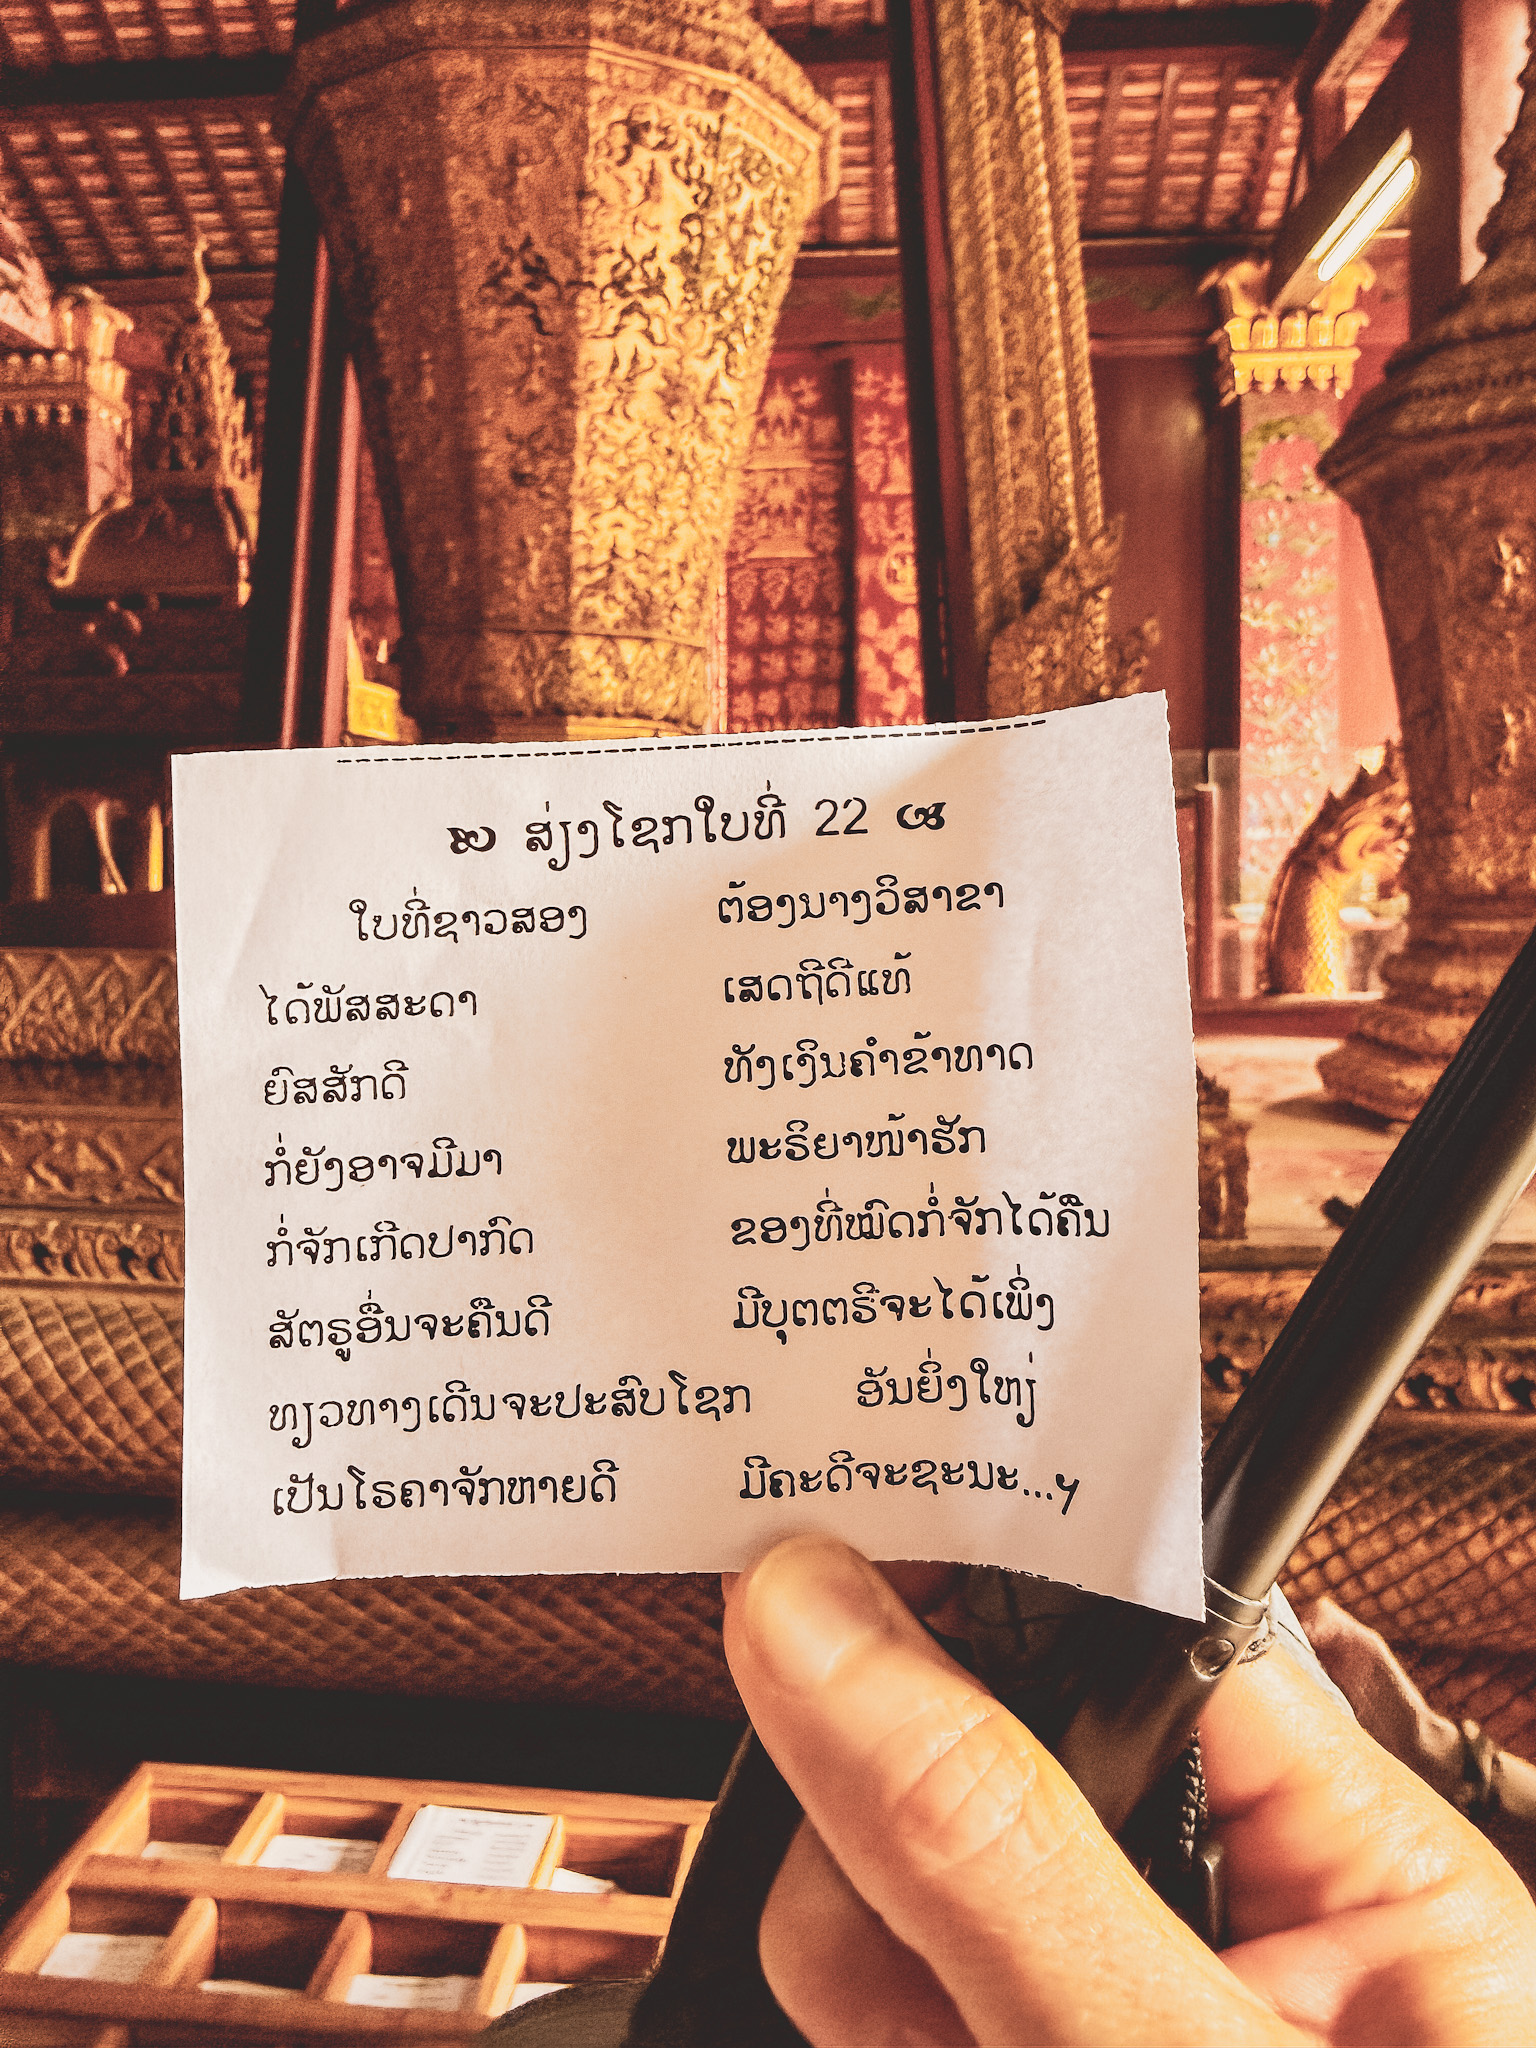 ສ່ຽງໂຊກໃບທີ່ 22
ໃບທີ່ຊາວສອງ ຕ້ອງນາງວິສາຂາ
ໄດ້ພັສສະດາ ເສດຖີດີແທ້
ຍົສສັກດີ ທັງເງິນຄຳຂ້າທາດ
ກໍ່ຍັງອາຈມີມາ ພະຣິຍາໜ້າຮັກ
ກໍ່ຈັກເກີດປາກົດ ຂອງທີ່ໝົດກໍ່ຈັກໄດ້ຄືນ
ສັຕຣູອື່ນຈະຄືນດີ ມີບຸຕຕຣີຈະໄດ້ເພິ່ງ
ທຽວທາງເດີນຈະປະສົບໂຊກ ອັນຍິ່ງໃຫຽ່
ເປັນໂຣຄາຈັກຫາຍດີ ມີຄະດີຈະຊະນະ...ຯ